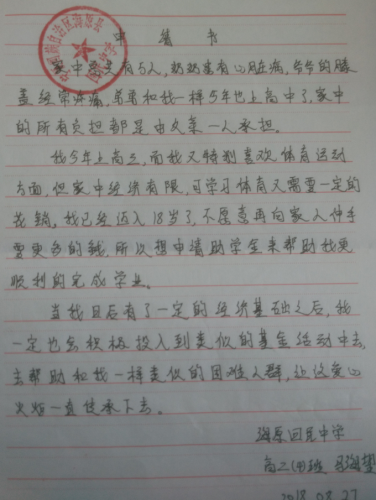 申请书
家中总共有5人,奶奶患有心脏病,爷爷的膝
盖经常疼痛,弟弟和我一样今年也上高中了,家中
的所有负担都是由父亲一人承担。
我今年上高三,而我又特别喜欢体育运动
方面,但家中经济有限,可学习体育又需要一定的
花销,我已经迈入18岁了,不愿意再向家人伸手
要更多的钱,所以想申请助学金来帮助我更
顺利的完成学业。
当我日后有了一定的经济基础之后,我
一定也会积极投入到类似的基金活动中去,
去帮助和我一样类似的困难人群,让这爱心
火炬一直传承下去。
海原回民中学
高三(4)班
2018.08.27